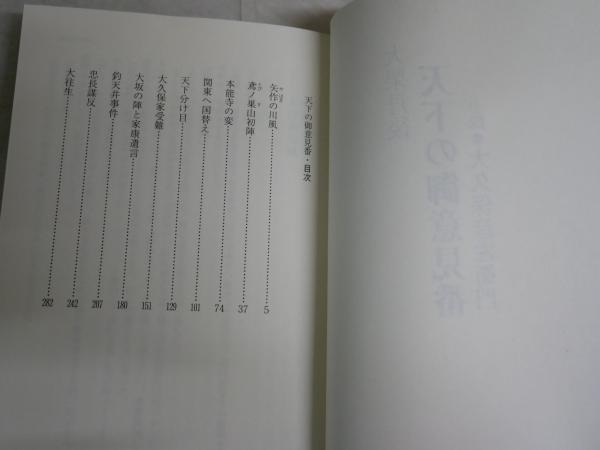 天下の御意見番・目次
矢作の川風……5
鳶ノ巣山初陣……37
本能寺の変……74
関東へ国替え……101
天下分け目……129
大久保家受難……151
大坂の陣と家康遺言……180
釣天井事件……207
忠長謀反……242
大往生……282
天下の御意見番